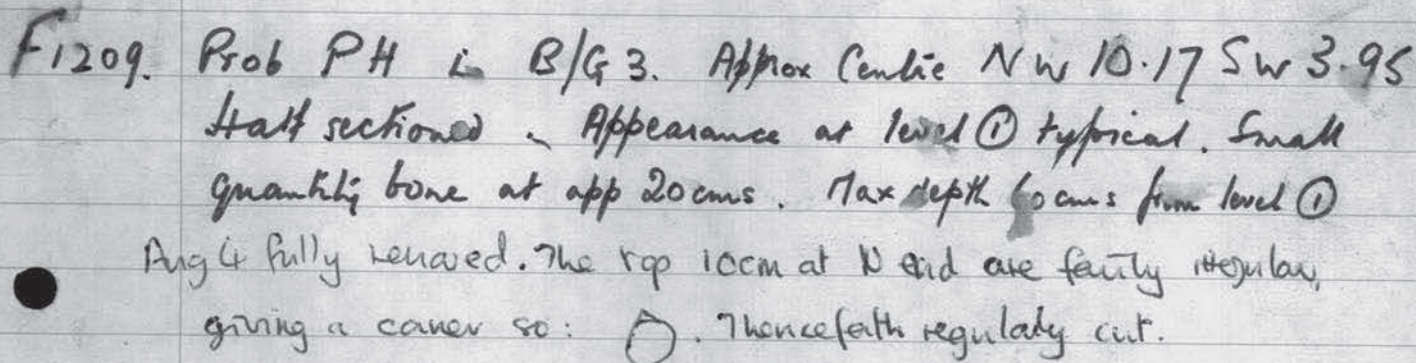 F1209. Prob PH in B/G 3. Approx Centre NW 10.17 SW 3.95
Half sectioned. Appearance at level ① typical. Small
quantity bone at app 20cms. Max depth 60cms from level ①
Aug 4 fully removed. The top 10cm at N end are fairly irregular,
giving a corner so: . Thenceforth regularly cut.